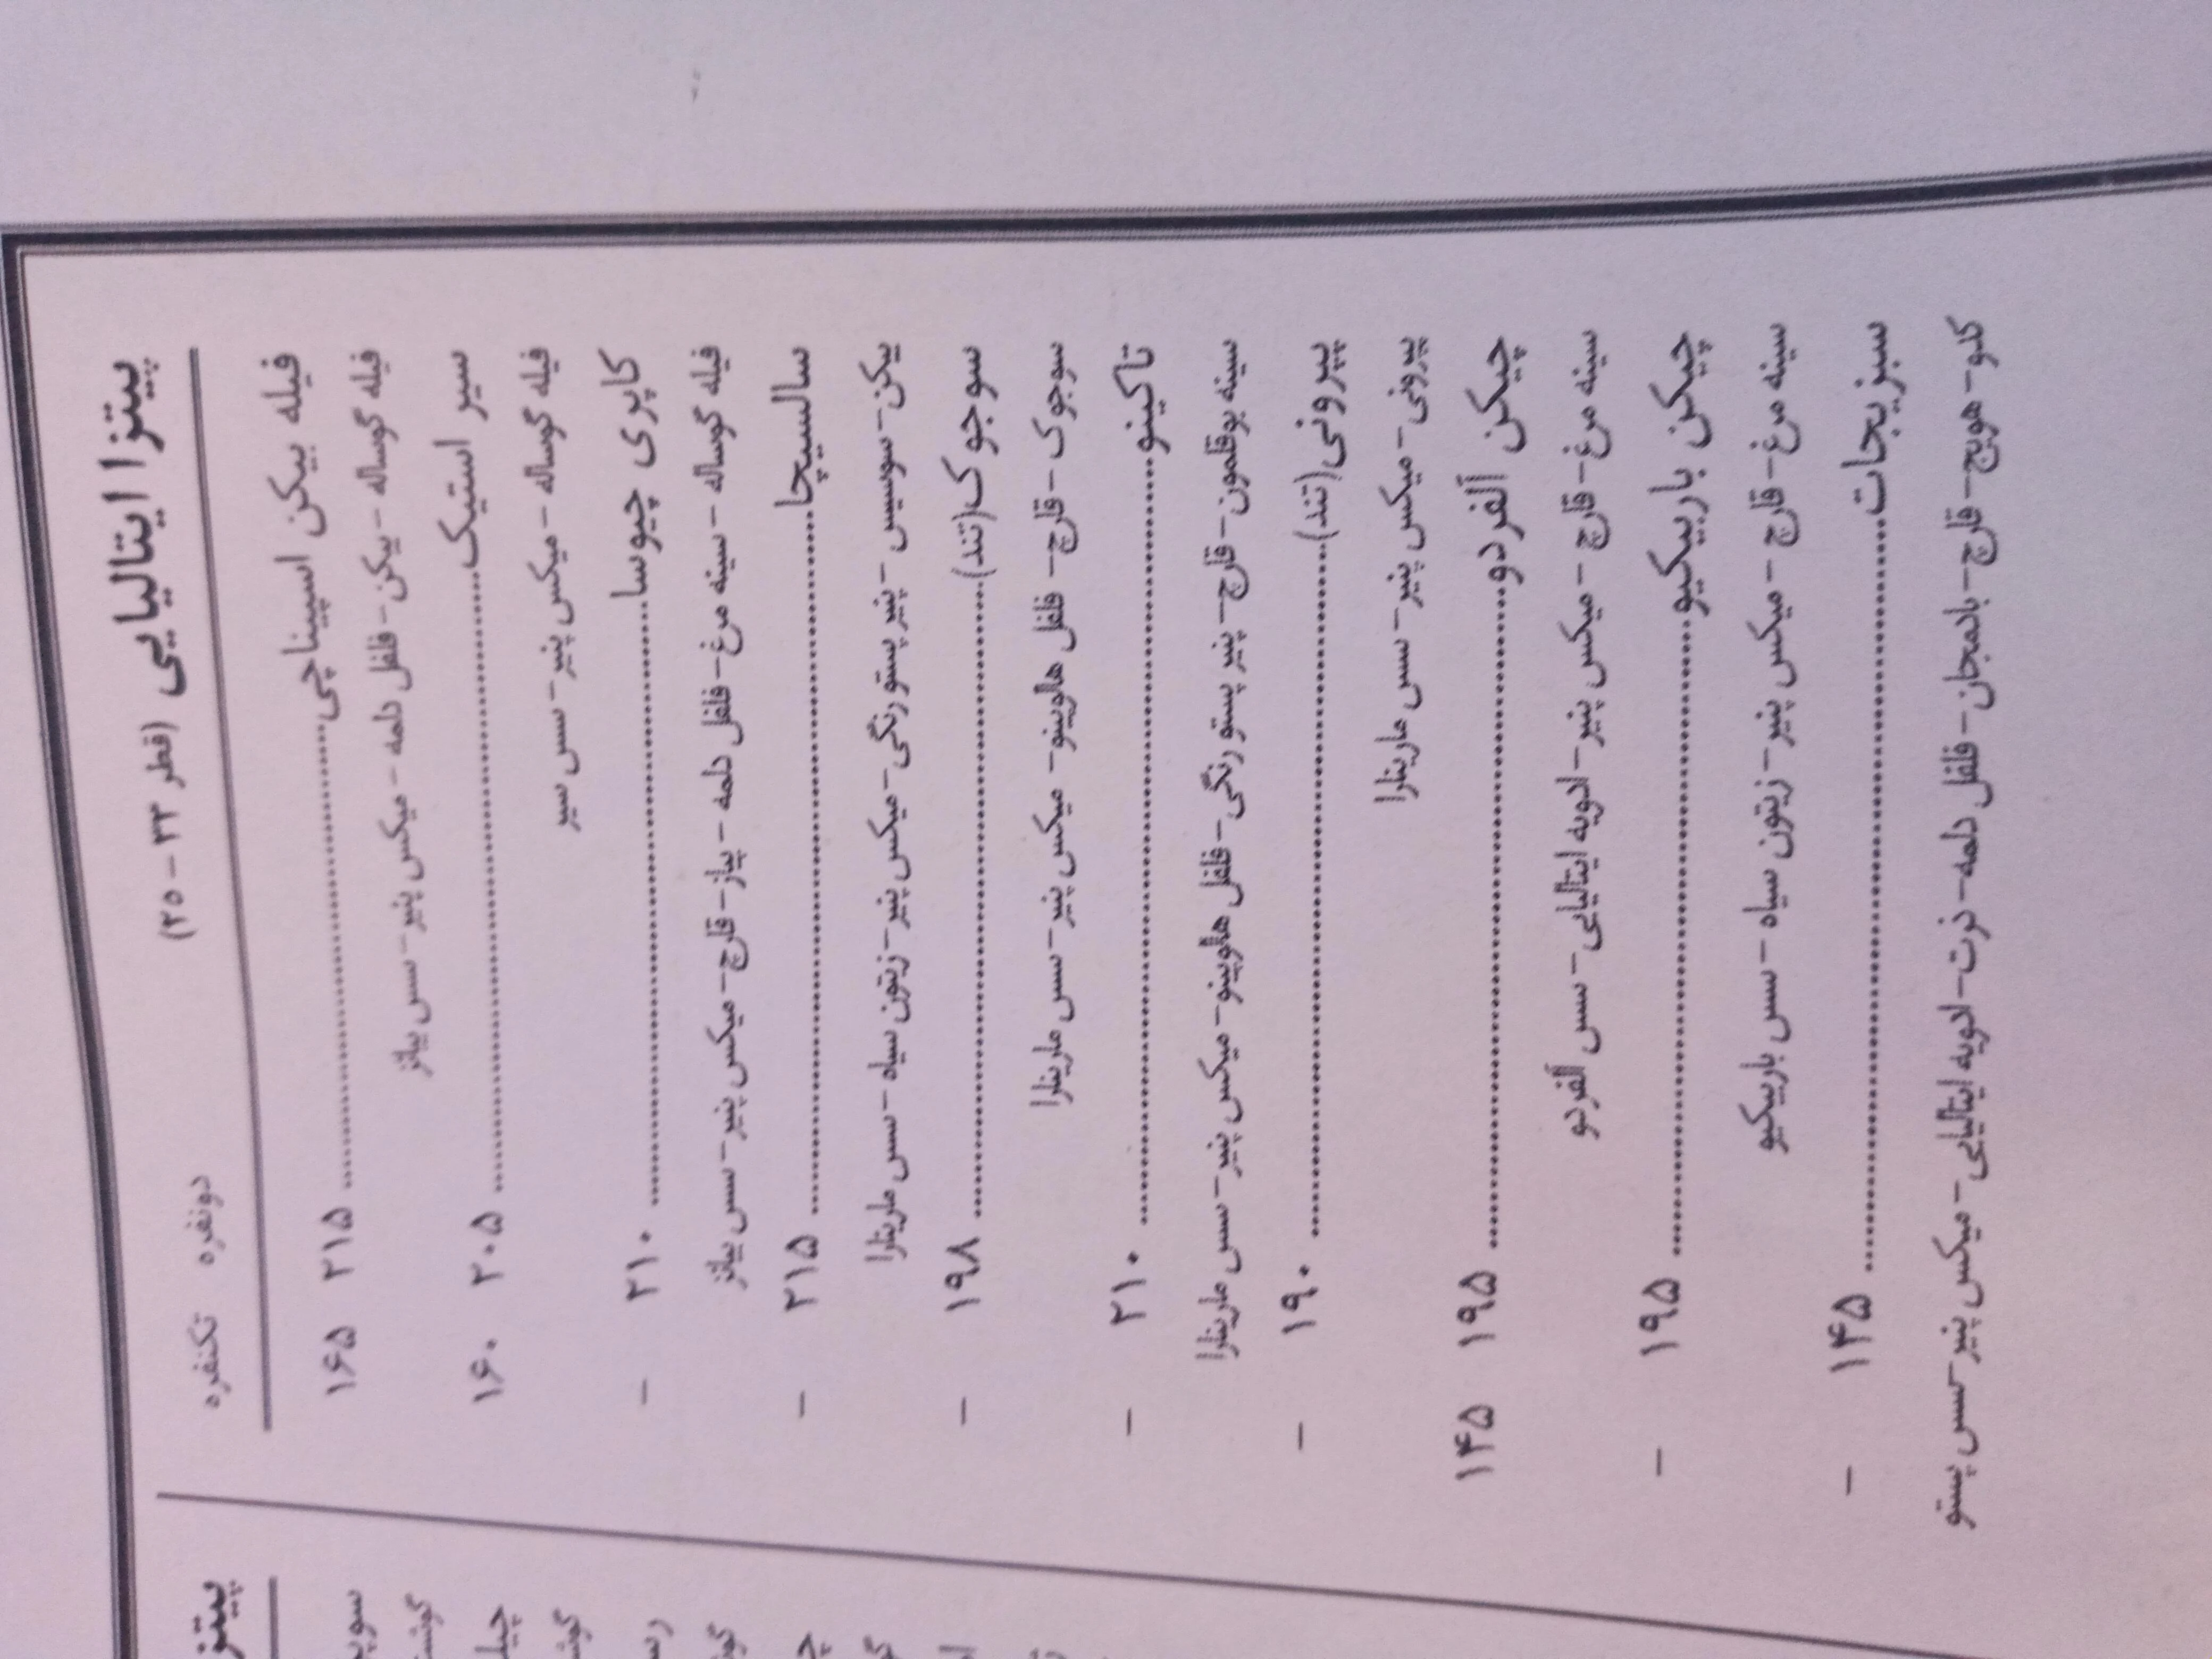 پیتزا ایتالیایی (قطر ۳۳ - ۲۵)
دونفره تکنفره
فیله بیکن اسپیناچی .......... ۲۱۵ ۱۶۵
فیله گوساله - بیکن - فلفل دلمه - میکس پنیر - سس بیانز
سیر استیک .......... ۲۰۵ ۱۶۰
فیله گوساله - میکس پنیر - سس سیر
کاپری چیوسا .......... ۲۱۰ -
فیله گوساله - سینه مرغ - فلفل دلمه - پیاز - قارچ - میکس پنیر - سس بیانز
سالسیچا .......... ۲۱۵ -
بیکن - سوسیس - پنیر پستو رنگی - میکس پنیر - زیتون سیاه - سس مارینارا
سوجوک (تند) .......... ۱۹۸ -
سوجوک - قارچ - فلفل هالوپینو - میکس پنیر - سس مارینارا
تاکینو .......... ۲۱۰ -
سینه بوقلمون - قارچ - پنیر پستو رنگی - فلفل هالوپینو - میکس پنیر - سس مارینارا
پپرونی (تند) .......... ۱۹۰ -
پپرونی - میکس پنیر - سس مارینارا
چیکن آلفردو .......... ۱۹۵ ۱۴۵
سینه مرغ - قارچ - میکس پنیر - ادویه ایتالیایی - سس آلفردو
چیکن باربیکیو .......... ۱۹۵ -
سینه مرغ - قارچ - میکس پنیر - زیتون سیاه - سس باربیکیو
سبزیجات .......... ۱۴۵ -
کدو - هویج - قارچ - بادمجان - فلفل دلمه - ذرت - ادویه ایتالیایی - میکس پنیر - سس پستو